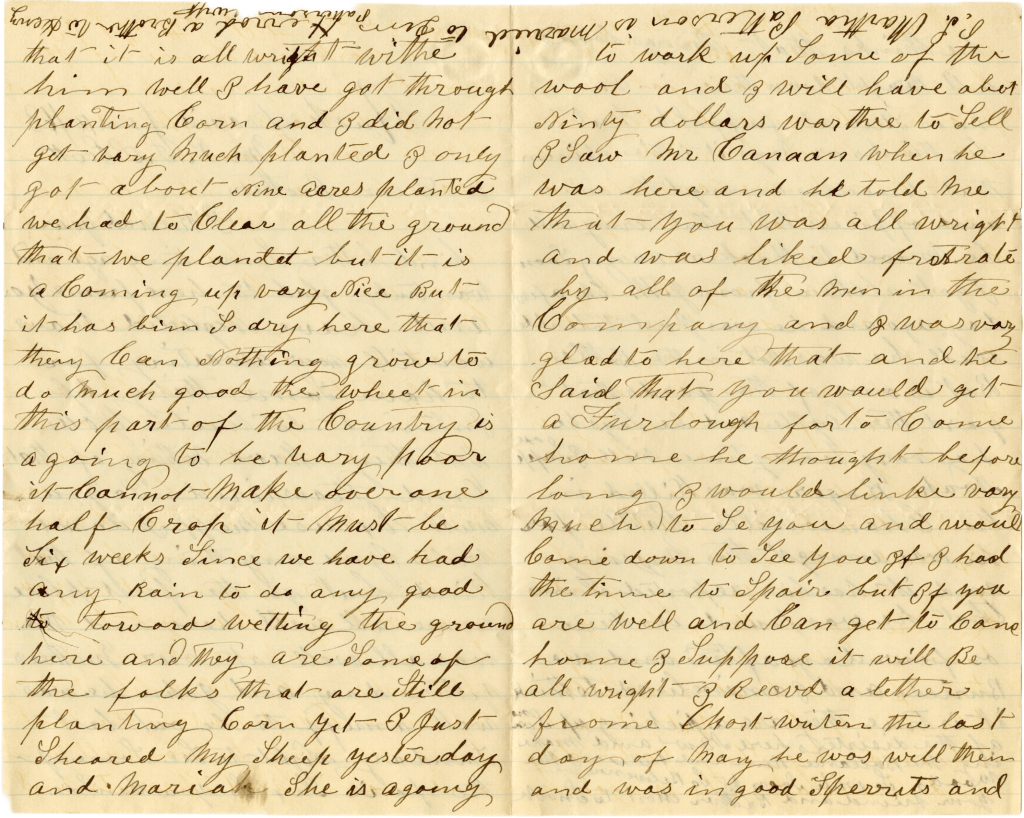 that it is all wright withe
him well I have got through
planting Corn and I did Not
get vary Much planted I only
got about Nine acres planted
we had to Clear all the ground
that we plandet but it is
a Coming up vary Nice But
it has bin So dry here that
they Can Nothing grow to
do Much good the wheet in
this part of the Country is
agoing to be vary poor
it Cannot Make over one
half Crop it Must be
Six weeks Since we have had
any Rain to do any good
to toword wetting the ground
here and they are Some of
the folks that are Still
planting Corn yet I Just
Sheared My Sheep yesterday
and Mariah She is agoing
to work up Some of the
wool and I will have abot
Ninty dollars warthee to Sell
I Saw Mr Canaan when he
was here and he told Me
that you was all wright
and was liked frstrate
by all of the Men in the
Company and I was vary
glad to here that and he
Said that you would get
a Furlough forto Come
home he thought before
long I would linke vary
Much to Se you and would
Come down to See you If I had
the time to Spair but If you
are well and Can get to Come
home I Suppose it will Be
all wright I Recvd a lether
frome Mort writen the last
day of May he was well then
and was in good Sperrits and
P.S. Martha Patterson is Married to Jim
Herrod a Brother to Henry
Patterson wife